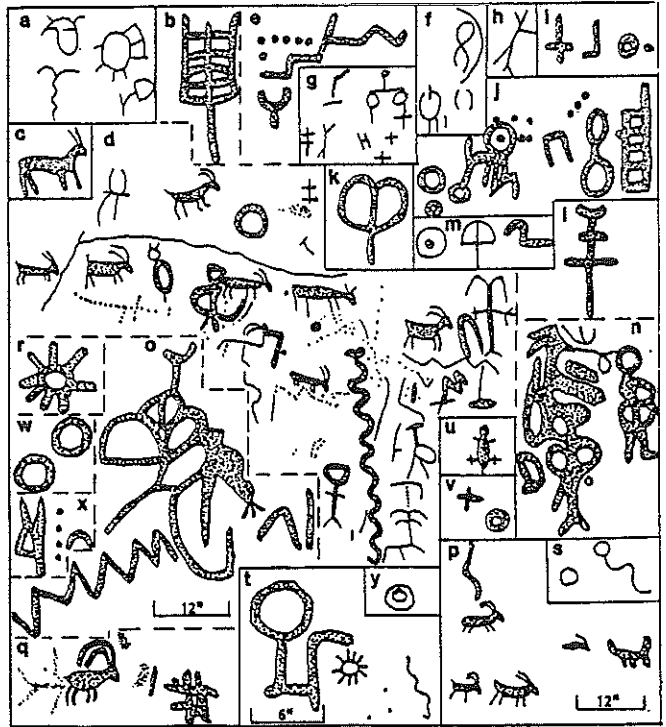 a
b
e
f
h
i
g
j
c
d
k
m
l
r
o
n
w
u
x
v
p
s
12"
t
y
q
6"
12"